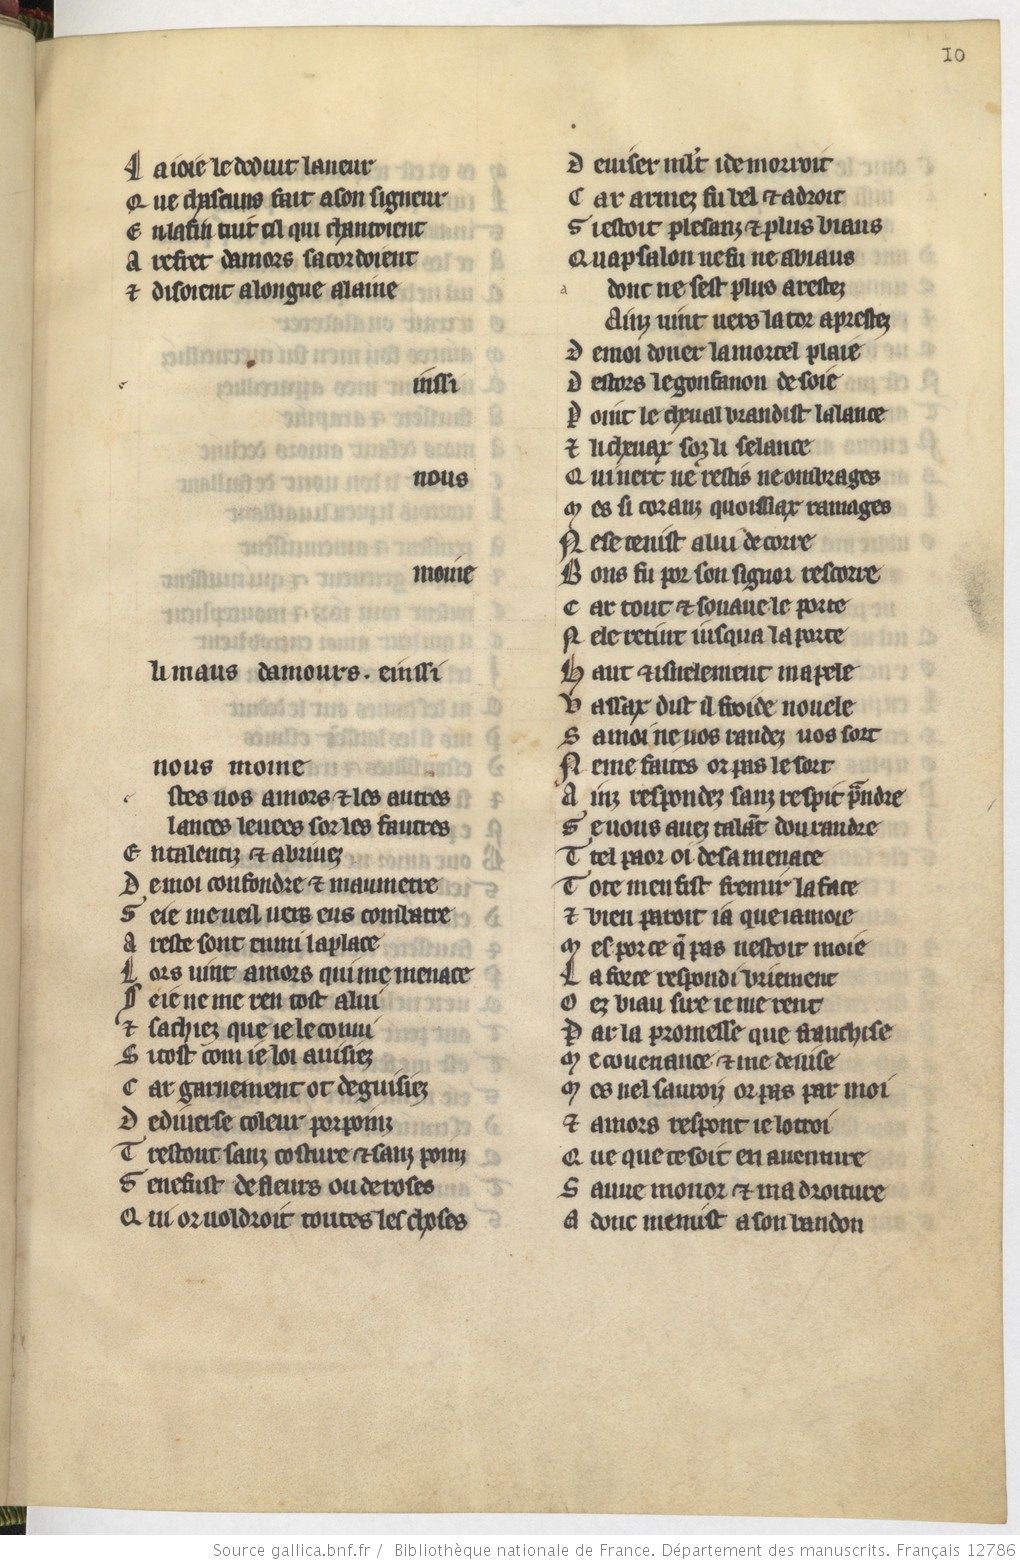 10
L a ioie le deduit laneur
Q ue chascuns fait a son signeur
E n la fin tuit cil qui chantoient
A refret damors sacordoient
⁊ disoient a longue alaine
einssi
nous
moine
li maus damours. einssi
nous moine
stes vos amors ⁊ les autres
lances levees sor les fautres
E ntalentiz ⁊ abrivez
D e moi confondre ⁊ maumetre
S eie me veil vers eus combatre
A reste sont enmi la place
L ors vint amors qui me menace
S eie ne me ren tost a lui
⁊ sachiez que ie le conui
S i tost com ie loi avisiez
C ar garnement ot deguisiez
D e diverse coleur porpoinz
T restout sanz costure ⁊ sanz poinz
S enefust de fleurs ou de roses
Q ui or voldroit toutes les choses
D eviser mlt i demorroit
C ar armez fu bel ⁊ adroit
S i estoit plesanz ⁊ plus biaus
Quapsalon ne fu ne abiaus
a donc ne sest plus arestez
Ainz vint vers la tor aprestez
D e moi doner la mortel plaie
D estors le gonfanon de soie
P oint le cheval brandist la lance
⁊ li chevax soz li selance
Q ui nert ne restis ne ombrages
M es si coranz quoissiax ramages
N e se tenist a lui de corre
B ons fu por son signor rescorre
C ar tout ⁊ souaue le porte
N ele retint iusqua la porte
H aut ⁊ isnelement mapele
V assax dist il froide novele
S a moi ne vos randez vos sort
N e me faites or pas le sort
A inz respondez sanz respit prendre
S e vous avez talant dou randre
T el paor oi de sa menace
T ote men fist fremir la face
⁊ bien paroit ia que iamoie
M es por ce q̃ pas nestoit moie
L a force respondi briement
O ez biau sire ie me rent
P ar la promesse que franchise
M e covenance ⁊ me devise
M es nel savroiz or pas par moi
⁊ amors respont ie lotroi
Q ue que ce soit en aventure
S auve monor ⁊ ma droiture
A donc me mist a son bandon
Source gallica.bnf.fr / Bibliothèque nationale de France. Département des manuscrits. Français 12786